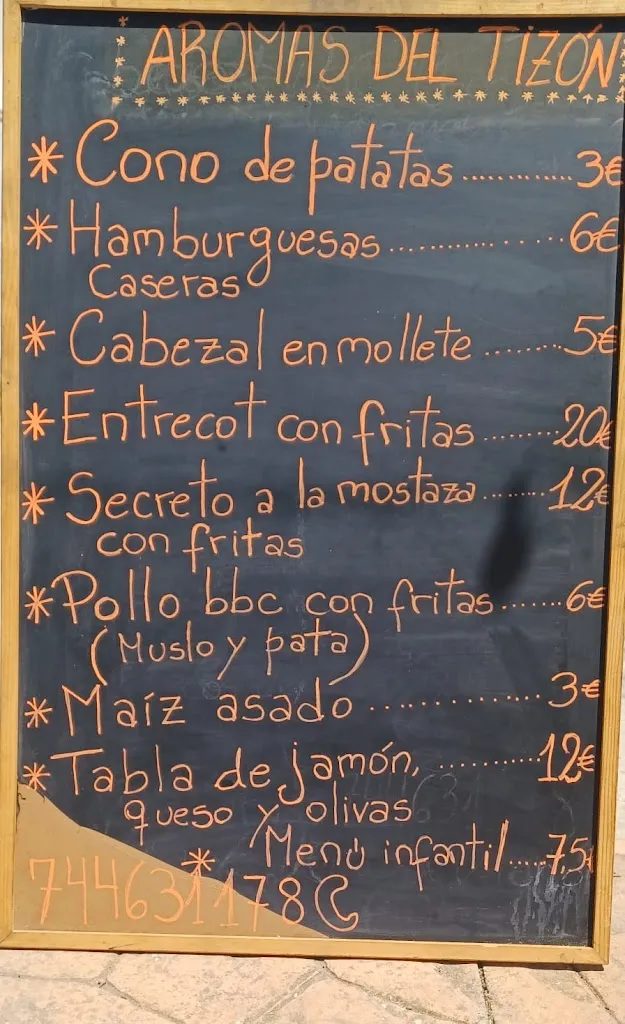 AROMAS DEL TIZÓN
* Cono de patatas ............ 3€
* Hamburguesas ............... 6€
Caseras
* Cabezal en mollete ........ 5€
* Entrecot con fritas ....... 20€
* Secreto a la mostaza ....... 12€
con fritas
* Pollo bbc con fritas ....... 6€
(Muslo y pata)
* Maíz asado ............... 3€
* Tabla de jamón, .......... 12€
queso y olivas
* Menú infantil .... 7,5€
744631178